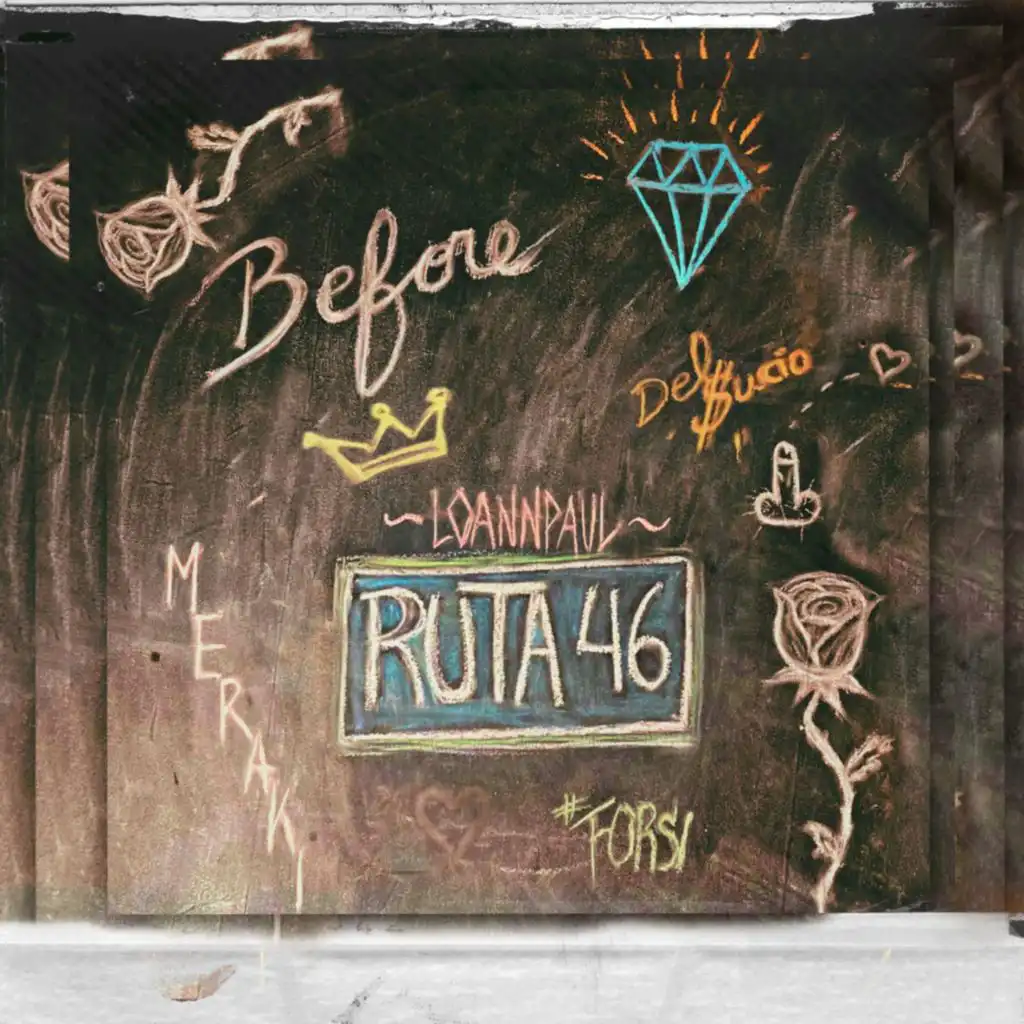 Before
Del$ucio
~LOANNPAUL~
RUTA 46
MERAKI
#FORSI